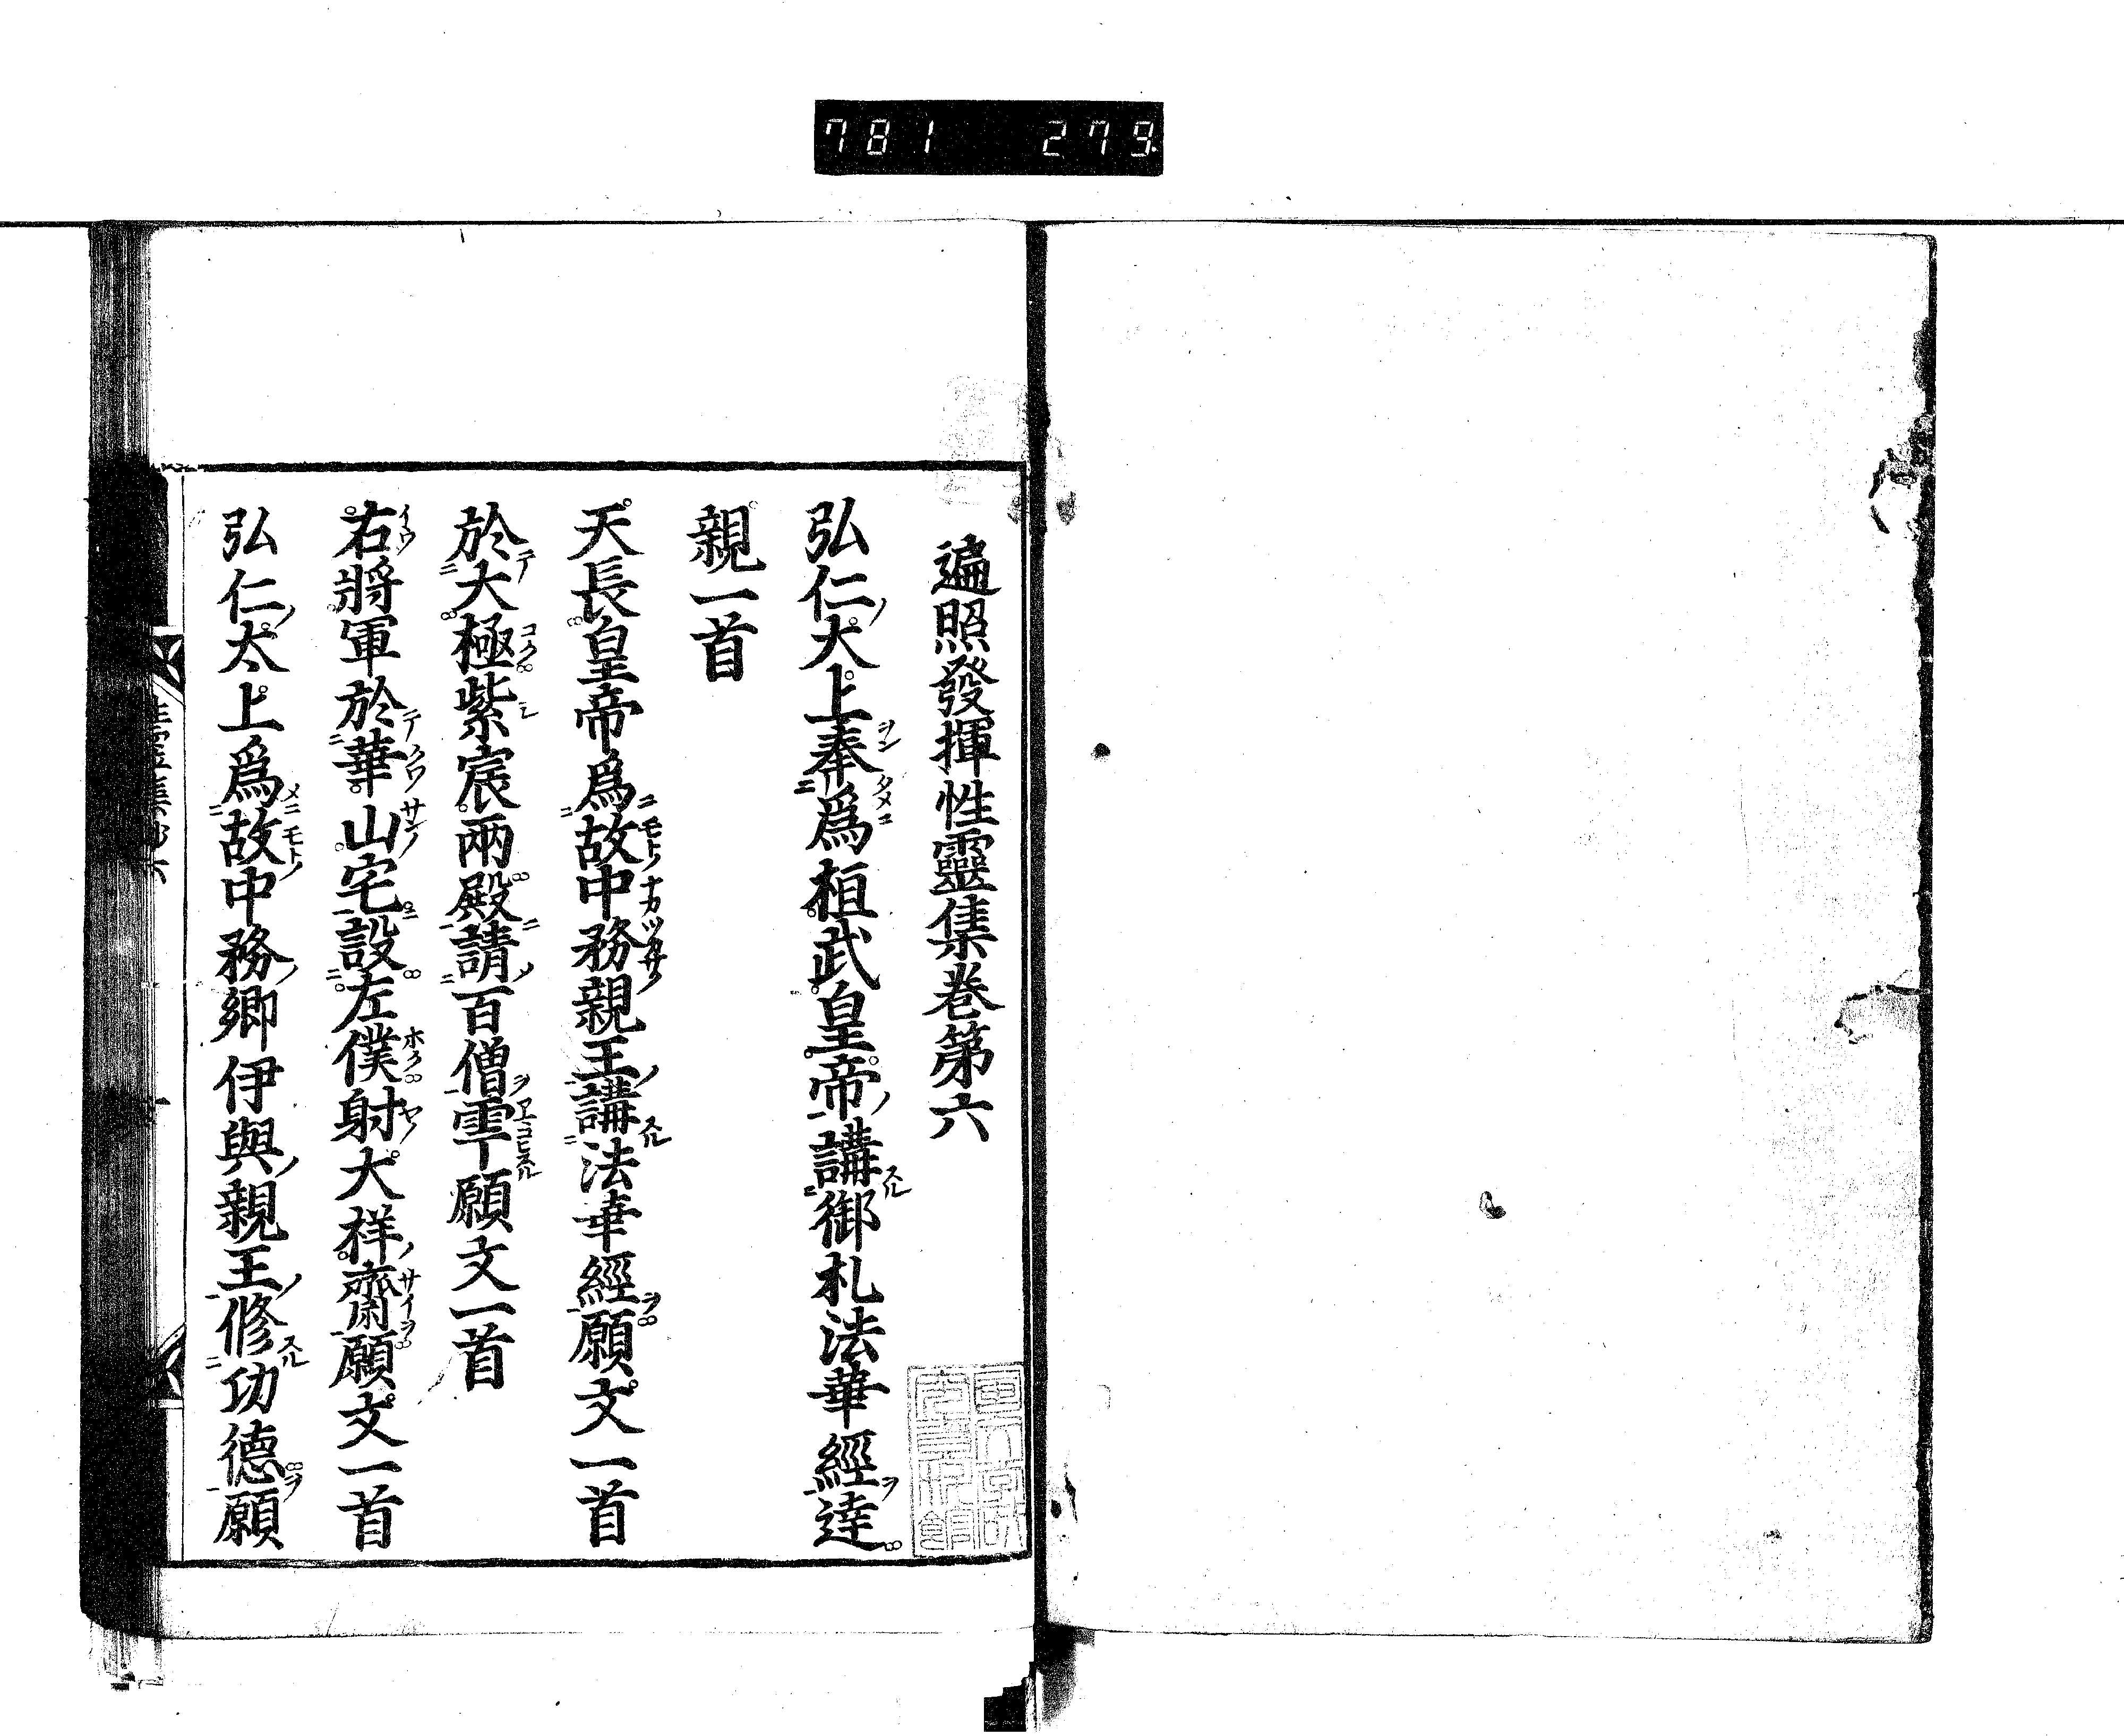 781 279
遍照發揮性靈集卷第六
弘仁大上奉爲桓武皇帝講御札法華經達
親一首
天長皇帝爲故中務親王講法華經願文一首
於大極紫宸兩殿請百僧雩願文一首
右將軍於華山宅設左僕射大祥齋願文一首
弘仁太上爲故中務卿伊與親王修功德願